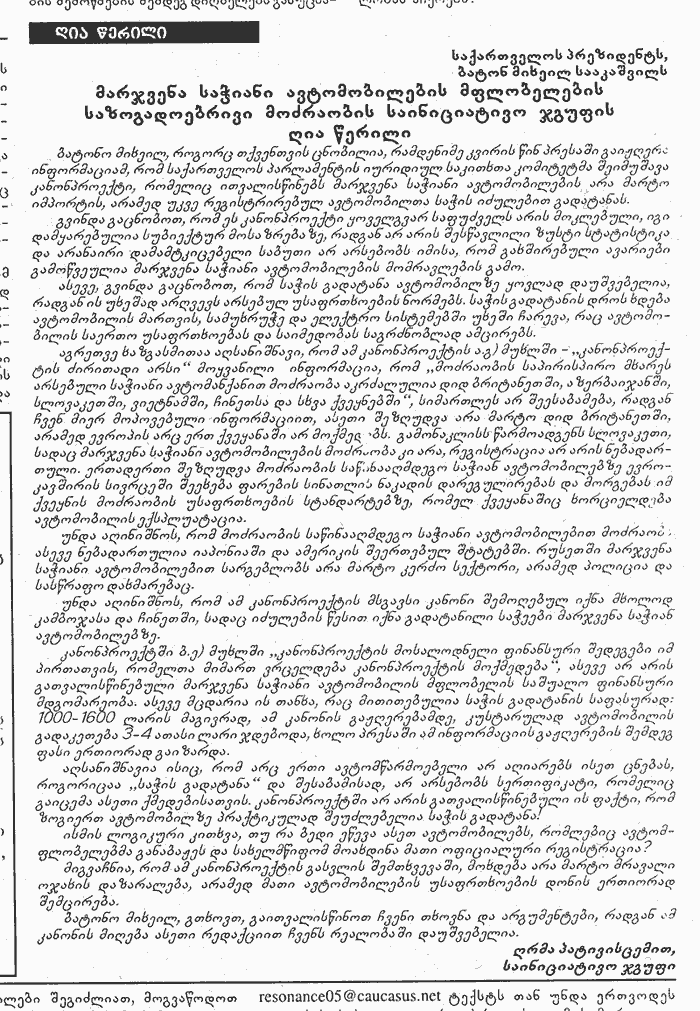 ღია წერილი
საქართველოს პრეზიდენტს,
ბატონ მიხეილ სააკაშვილს
მარჯვენა საჭიანი ავტომობილების მფლობელების
საზოგადოებრივი მოძრაობის საინიციატივო ჯგუფის
ღია წერილი
ბატონო მიხეილ, როგორც თქვენთვის ცნობილია, რამდენიმე კვირის წინ პრესაში გაიჟღერა
ინფორმაციამ, რომ საქართველოს პარლამენტის იურიდიულ საკითხთა კომიტეტმა შეიმუშავა
კანონპროექტი, რომელიც ითვალისწინებს მარჯვენა საჭიანი ავტომობილების არა მარტო
იმპორტის, არამედ უკვე რეგისტრირებულ ავტომობილთა საჭის იძულებით გადატანას.
გვინდა გაცნობოთ, რომ ეს კანონპროექტი ყოველგვარ საფუძველს არის მოკლებული, იგი
დამყარებულია სუბიექტურ მოსაზრებაზე, რადგან არ არის შესწავლილი ზუსტი სტატისტიკა
და არანაირი დამამტკიცებელი საბუთი არ არსებობს იმისა, რომ გახშირებული ავარიები
გამოწვეულია მარჯვენა საჭიანი ავტომობილების მომრავლების გამო.
ასევე, გვინდა გაცნობოთ, რომ საჭის გადატანა ავტომობილზე ყოვლად დაუშვებელია,
რადგან ის უხეშად არღვევს არსებულ უსაფრთხოების ნორმებს. საჭის გადატანის დროს ხდება
ავტომობილის მართვის, სამუხრუჭე და ელექტრო სისტემებში უხეში ჩარევა, რაც ავტომო-
ბილის საერთო უსაფრთხოებას და საიმედობას საგრძნობლად ამცირებს.
აგრეთვე ხაზგასმითაა აღსანიშნავი, რომ ამ კანონპროექტის ა.გ) მუხლში – „კანონპროექ-
ტის ძირითადი არსი“ მოყვანილი ინფორმაცია, რომ „მოძრაობის საპირისპირო მხარეს
არსებული საჭიანი ავტომანქანით მოძრაობა აკრძალულია დიდ ბრიტანეთში, აზერბაიჯანში,
სლოვაკეთში, ვიეტნამში, ჩინეთსა და სხვა ქვეყნებში“, სიმართლეს არ შეესაბამება, რადგან
ჩვენ მიერ მოპოვებული ინფორმაციით, ასეთი შეზღუდვა არა მარტო დიდ ბრიტანეთში,
არამედ ევროპის არც ერთ ქვეყანაში არ მოქმედებს. გამონაკლისს წარმოადგენს სლოვაკეთი,
სადაც მარჯვენა საჭიანი ავტომობილების მოძრაობა კი არა, რეგისტრაცია არ არის ნებადარ-
თული. ერთადერთი შეზღუდვა მოძრაობის საწინააღმდეგო საჭიან ავტომობილებზე ევრო-
კავშირის სივრცეში შეეხება ფარების სინათლის ნაკადის დარეგულირებას და მორგებას იმ
ქვეყნის მოძრაობის უსაფრთხოების სტანდარტებზე, რომელ ქვეყანაშიც ხორციელდება
ავტომობილის ექსპლუატაცია.
უნდა აღინიშნოს, რომ მოძრაობის საწინააღმდეგო საჭიანი ავტომობილებით მოძრაობა
ასევე ნებადართულია იაპონიაში და ამერიკის შეერთებულ შტატებში. რუსეთში მარჯვენა
საჭიანი ავტომობილებით სარგებლობს არა მარტო კერძო სექტორი, არამედ პოლიცია და
სასწრაფო დახმარებაც.
უნდა აღინიშნოს, რომ ამ კანონპროექტის მსგავსი კანონი შემოღებულ იქნა მხოლოდ
კამბოჯასა და ჩინეთში, სადაც იძულების წესით იქნა გადატანილი საჭეები მარჯვენა საჭიან
ავტომობილებზე.
კანონპროექტში ბ.ე) მუხლში „კანონპროექტის მოსალოდნელი ფინანსური შედეგები იმ
პირთათვის, რომელთა მიმართ ვრცელდება კანონპროექტის მოქმედება“, ასევე არ არის
გათვალისწინებული მარჯვენა საჭიანი ავტომობილის მფლობელის საშუალო ფინანსური
მდგომარეობა. ასევე მცდარია ის თანხა, რაც მითითებულია საჭის გადატანის საფასურად:
1000-1600 ლარის მაგივრად, ამ კანონის გაჟღერებამდე, კუსტარულად ავტომობილის
გადაკეთება 3-4 ათასი ლარი ჯდებოდა, ხოლო პრესაში ამ ინფორმაციის გაჟღერების შემდეგ
ფასი ერთიორად გაიზარდა.
აღსანიშნავია ისიც, რომ არც ერთი ავტომწარმოებელი არ აღიარებს ისეთ ცნებას,
როგორიცაა „საჭის გადატანა“ და შესაბამისად, არ არსებობს სერთიფიკატი, რომელიც
გაიცემა ასეთი ქმედებისათვის. კანონპროექტში არ არის გათვალისწინებული ის ფაქტი, რომ
ზოგიერთ ავტომობილზე პრაქტიკულად შეუძლებელია საჭის გადატანა!
ისმის ლოგიკური კითხვა, თუ რა ბედი ეწევა ასეთ ავტომობილებს, რომლებიც ავტომ-
ფლობელებმა განაბაჟეს და სახელმწიფომ მოახდინა მათი ოფიციალური რეგისტრაცია?
მიგვაჩნია, რომ ამ კანონპროექტის გასვლის შემთხვევაში, მოხდება არა მარტო მრავალი
ოჯახის დაზარალება, არამედ მათი ავტომობილების უსაფრთხოების დონის ერთიორად
შემცირება.
ბატონო მიხეილ, გთხოვთ, გაითვალისწინოთ ჩვენი თხოვნა და არგუმენტები, რადგან ამ
კანონის მიღება ასეთი რედაქციით ჩვენს რეალობაში დაუშვებელია.
ღრმა პატივისცემით,
საინიციატივო ჯგუფი
შეგიძლიათ, მოგვაწოდოთ resonance05@caucasus.net ტექსტს თან უნდა ერთვოდეს